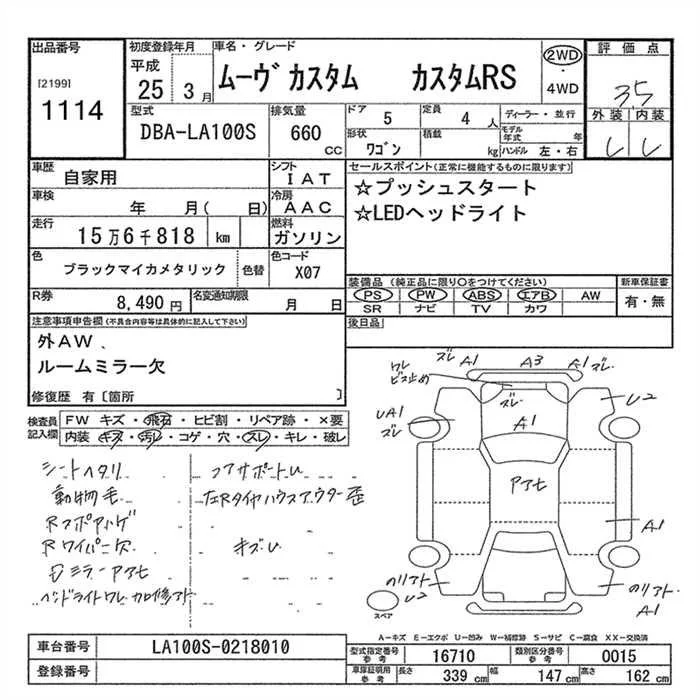 出品番号
[2199]
1114
初度登録年月
平成
25 3 月
車名・グレード
ムーヴ カスタム カスタムRS
2WD
・
4WD
評価点
3.5
外装 内装
型式
DBA-LA100S
排気量
660
CC
ドア 5
定員 4 人
形状 ワゴン
積載 kg
ディーラー・並行
モデル年式 年
ハンドル 左・右
車歴 自家用
シフト IAT
車検 年 月( 日)
冷房 AAC
走行 15万6千818 km
燃料 ガソリン
色 ブラックマイカメタリック 色替
色コード X07
R券 8,490円
名変通知期限 月 日
セールスポイント(正常に機能するものに限ります)
☆プッシュスタート
☆LEDヘッドライト
装備品 (純正品に限り○をつけてください)
PS PW ABS エアB AW
SR ナビ TV カワ
新車保証書
有・無
後日品
注意事項申告欄(不具合内容等は具体的に記入して下さい)
外AW、
ルームミラー欠
修復歴 有〔箇所 〕
検査員記入欄
FW キズ・飛石・ヒビ割・リペア跡・×要
内装 キズ・汚レ・コゲ・穴・スレ・キレ・破レ
シートヘタリ
動物毛
Rワイパー欠
コアサポートU
キズU
ワレ
ビス止め
ズレ A1 A3 A1 ズレ
ズレ
A1
U2
UA1
ズレ
アセ
A1
U2
A1
スペア
A-キズ E-エクボ U-凹み W-補修跡 S-サビ C-腐食 XX-交換済
車台番号 LA100S-0218010
登録番号
型式指定番号 参考 16710
類別区分番号 参考 0015
車庫証明用 参考 長さ 339 cm 幅 147 cm 高さ 162 cm